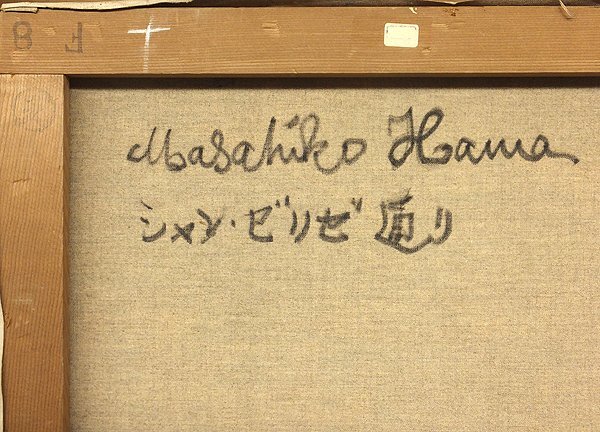 F 8
Masahiko Hama
シャン・ゼリゼ通り